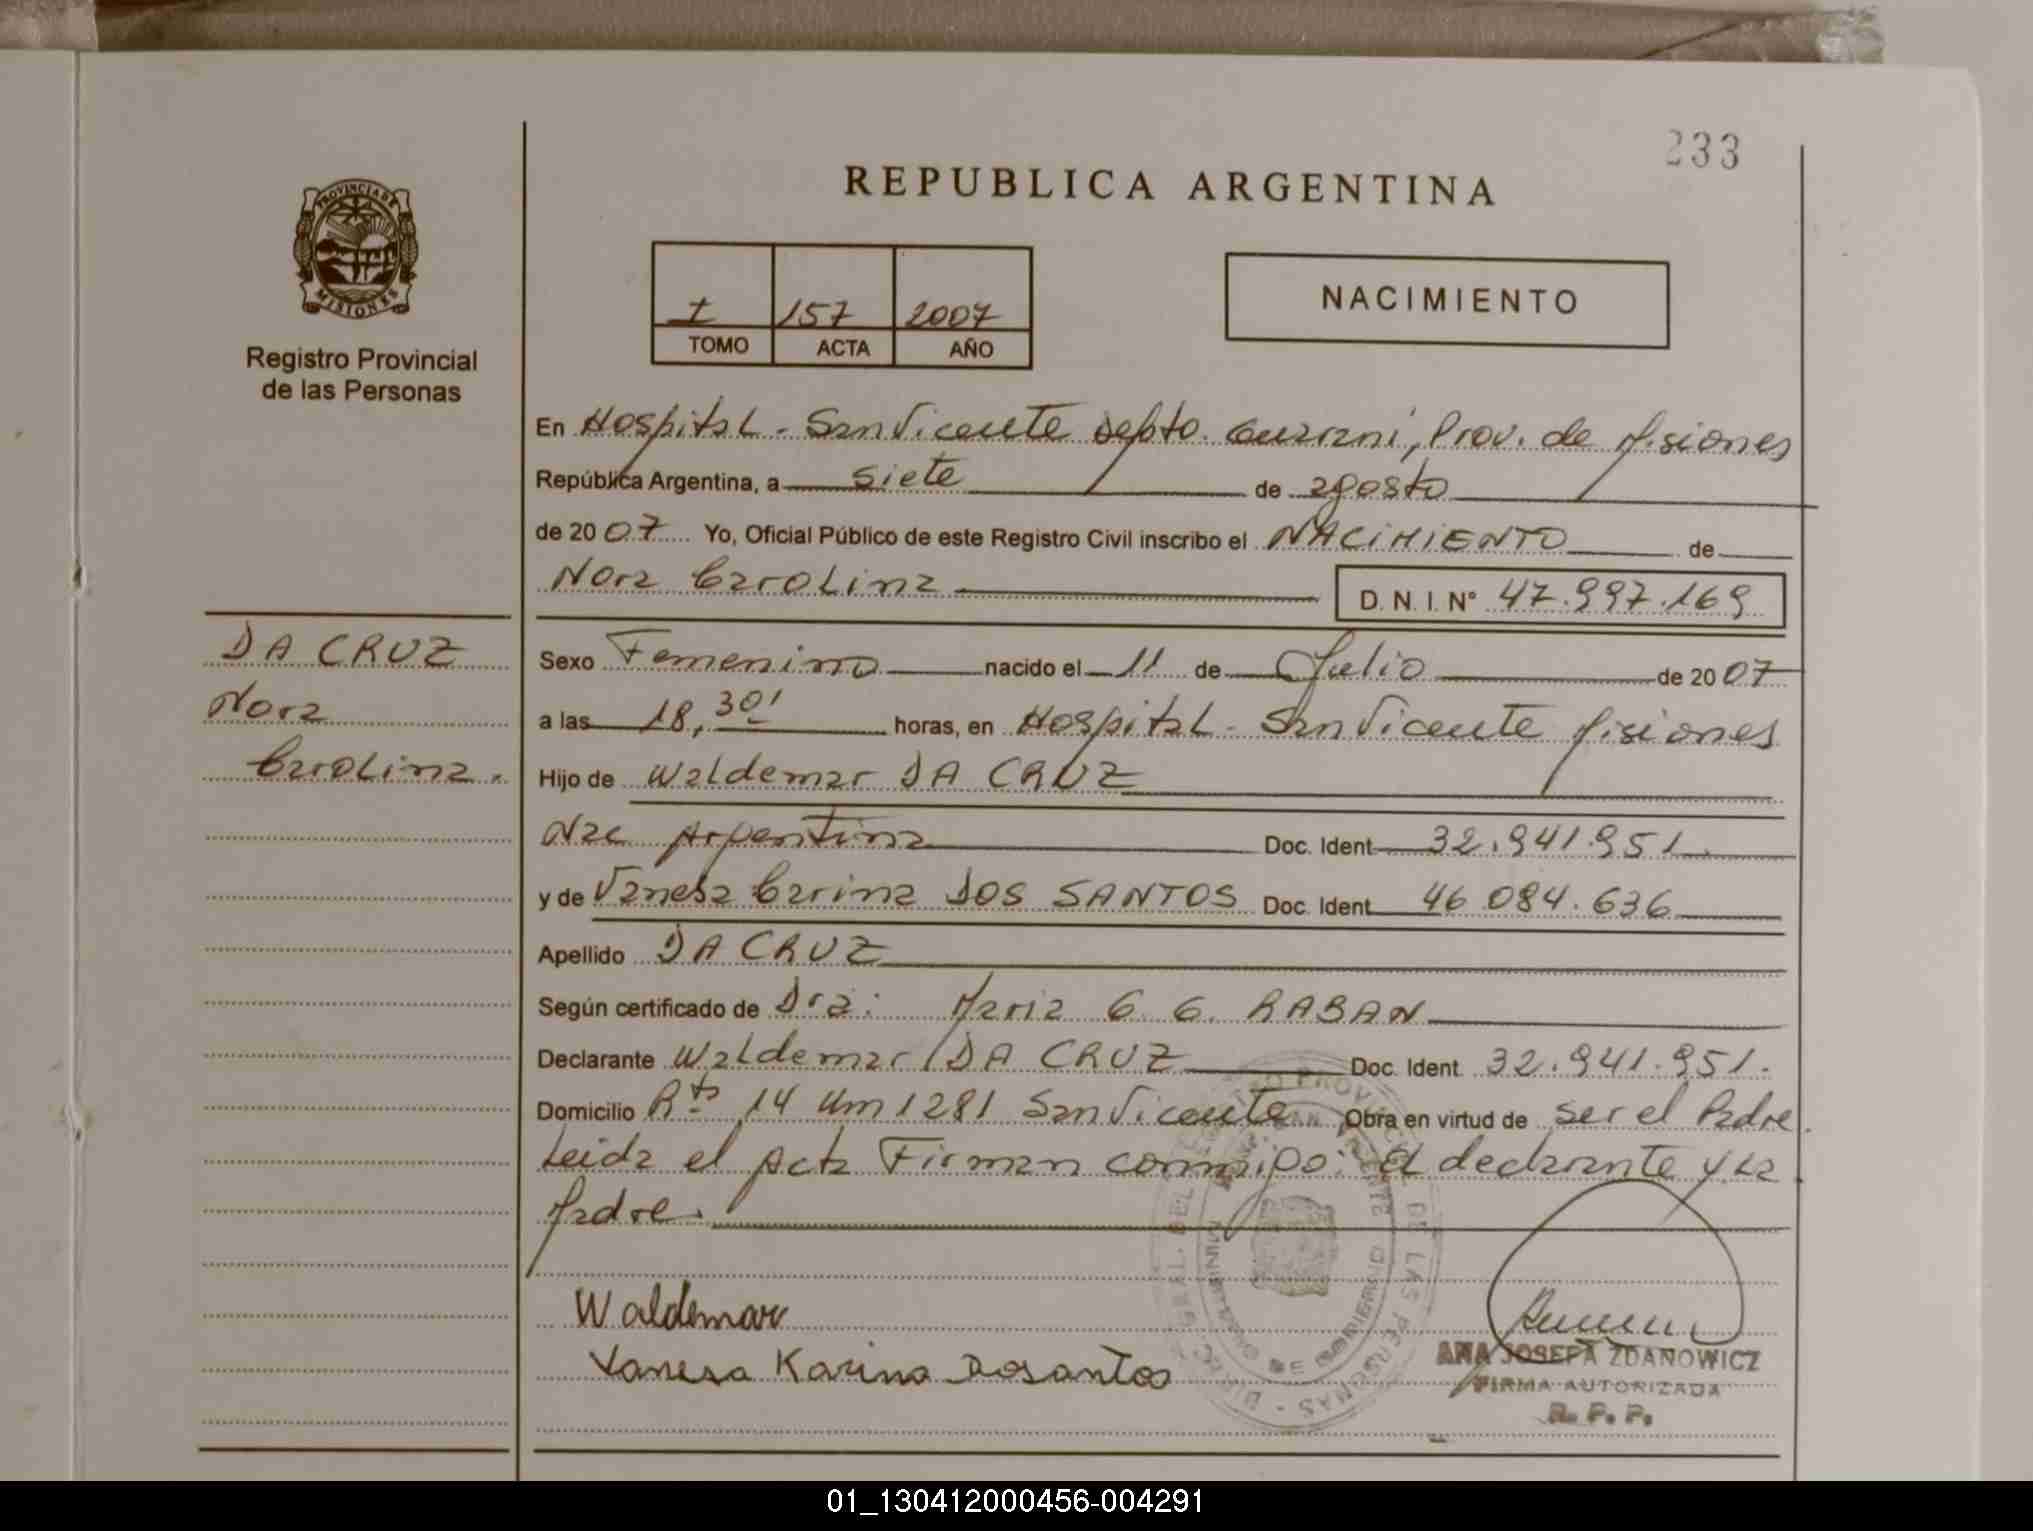 233
REPUBLICA ARGENTINA
PROVINCIA DE
MISIONES
Registro Provincial
de las Personas
I 157 2007
TOMO ACTA AÑO
NACIMIENTO
En Hospital - San Vicente Depto. Guarani, Prov. de Misiones
República Argentina, a siete de agosto
de 2007 Yo, Oficial Público de este Registro Civil inscribo el NACIMIENTO de
Nora Carolina D. N. I. N° 47.997.169
DA CRUZ
Nora
Carolina.
Sexo Femenino nacido el 11 de Julio de 2007
a las 18,30' horas, en Hospital - San Vicente Misiones
Hijo de Waldemar DA CRUZ
Nac Argentina Doc. Ident 32.941.951.
y de Vanesa Carina DOS SANTOS Doc. Ident 46 084.636
Apellido DA CRUZ
Según certificado de Dra: Maria G. G. RABAN
Declarante Waldemar DA CRUZ Doc. Ident 32.941.951.
Domicilio Rta 14 Km 1281 San Vicente Obra en virtud de ser el Padre.
Leida el Acta Firman conmigo: El declarante y La
Madre.
Waldemar
Vanesa Karina Dosantos
ANA JOSEFA ZDANOWICZ
FIRMA AUTORIZADA
R. P. P.
01_130412000456-004291